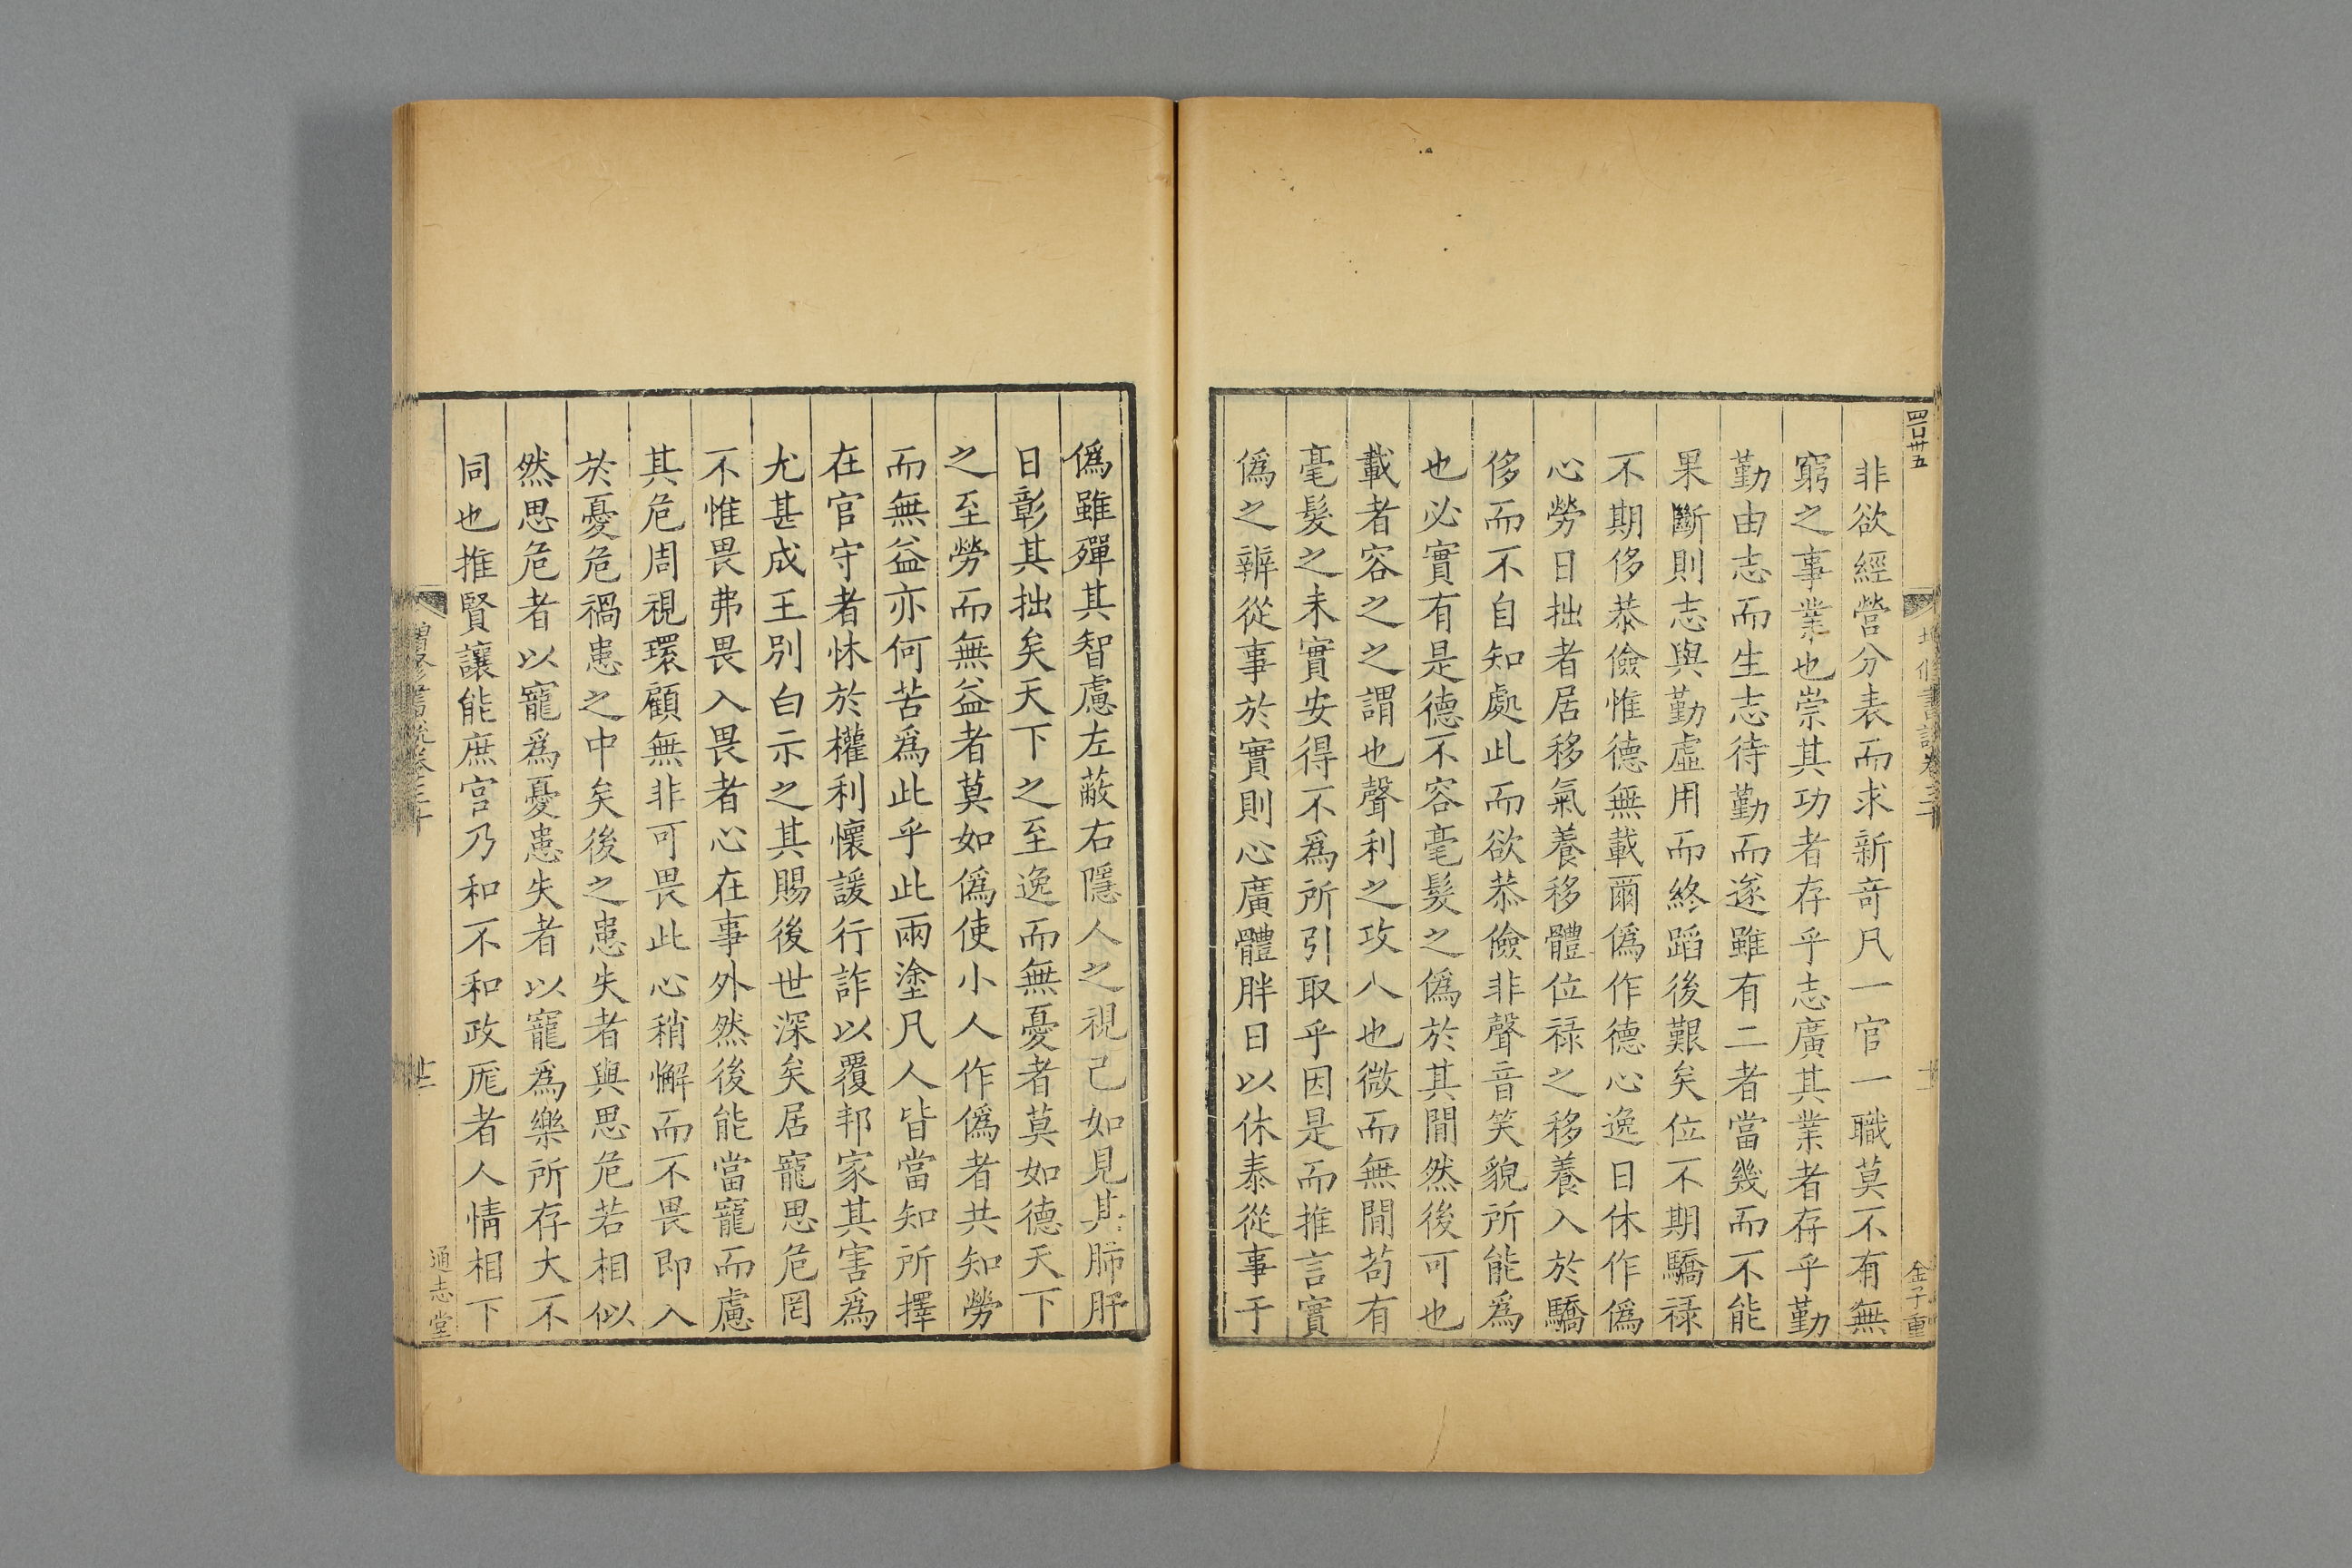 四百卅五
金子重
非欲經營分表而求新奇凡一官一職莫不有無
窮之事業也崇其功者存乎志廣其業者存乎勤
勤由志而生志待勤而遂雖有二者當幾而不能
果斷則志與勤虛用而終蹈後艱矣位不期驕祿
不期侈恭儉惟德無載爾僞作德心逸日休作僞
心勞日拙者居移氣養移體位祿之移養入於驕
侈而不自知處此而欲恭儉非聲音笑貌所能爲
也必實有是德不容毫髮之僞於其間然後可也
載者容之之謂也聲利之攻人也微而無間苟有
毫髮之未實安得不爲所引取乎因是而推言實
僞之辨從事於實則心廣體胖日以休泰從事于
僞雖殫其智慮左蔽右隱人之視己如見其肺肝
日彰其拙矣天下之至逸而無憂者莫如德天下
之至勞而無益者莫如僞使小人作僞者共知勞
而無益亦何苦爲此乎此兩塗凡人皆當知所擇
在官守者怵於權利懷諼行詐以覆邦家其害爲
尤甚成王別白示之其賜後世深矣居寵思危罔
不惟畏弗畏入畏者心在事外然後能當寵而慮
其危周視環顧無非可畏此心稍懈而不畏即入
於憂危禍患之中矣後之患失者與思危若相似
然思危者以寵爲憂患失者以寵爲樂所存大不
同也推賢讓能庶官乃和不和政厖者人情相下
增修書說卷三十
廿一
通志堂